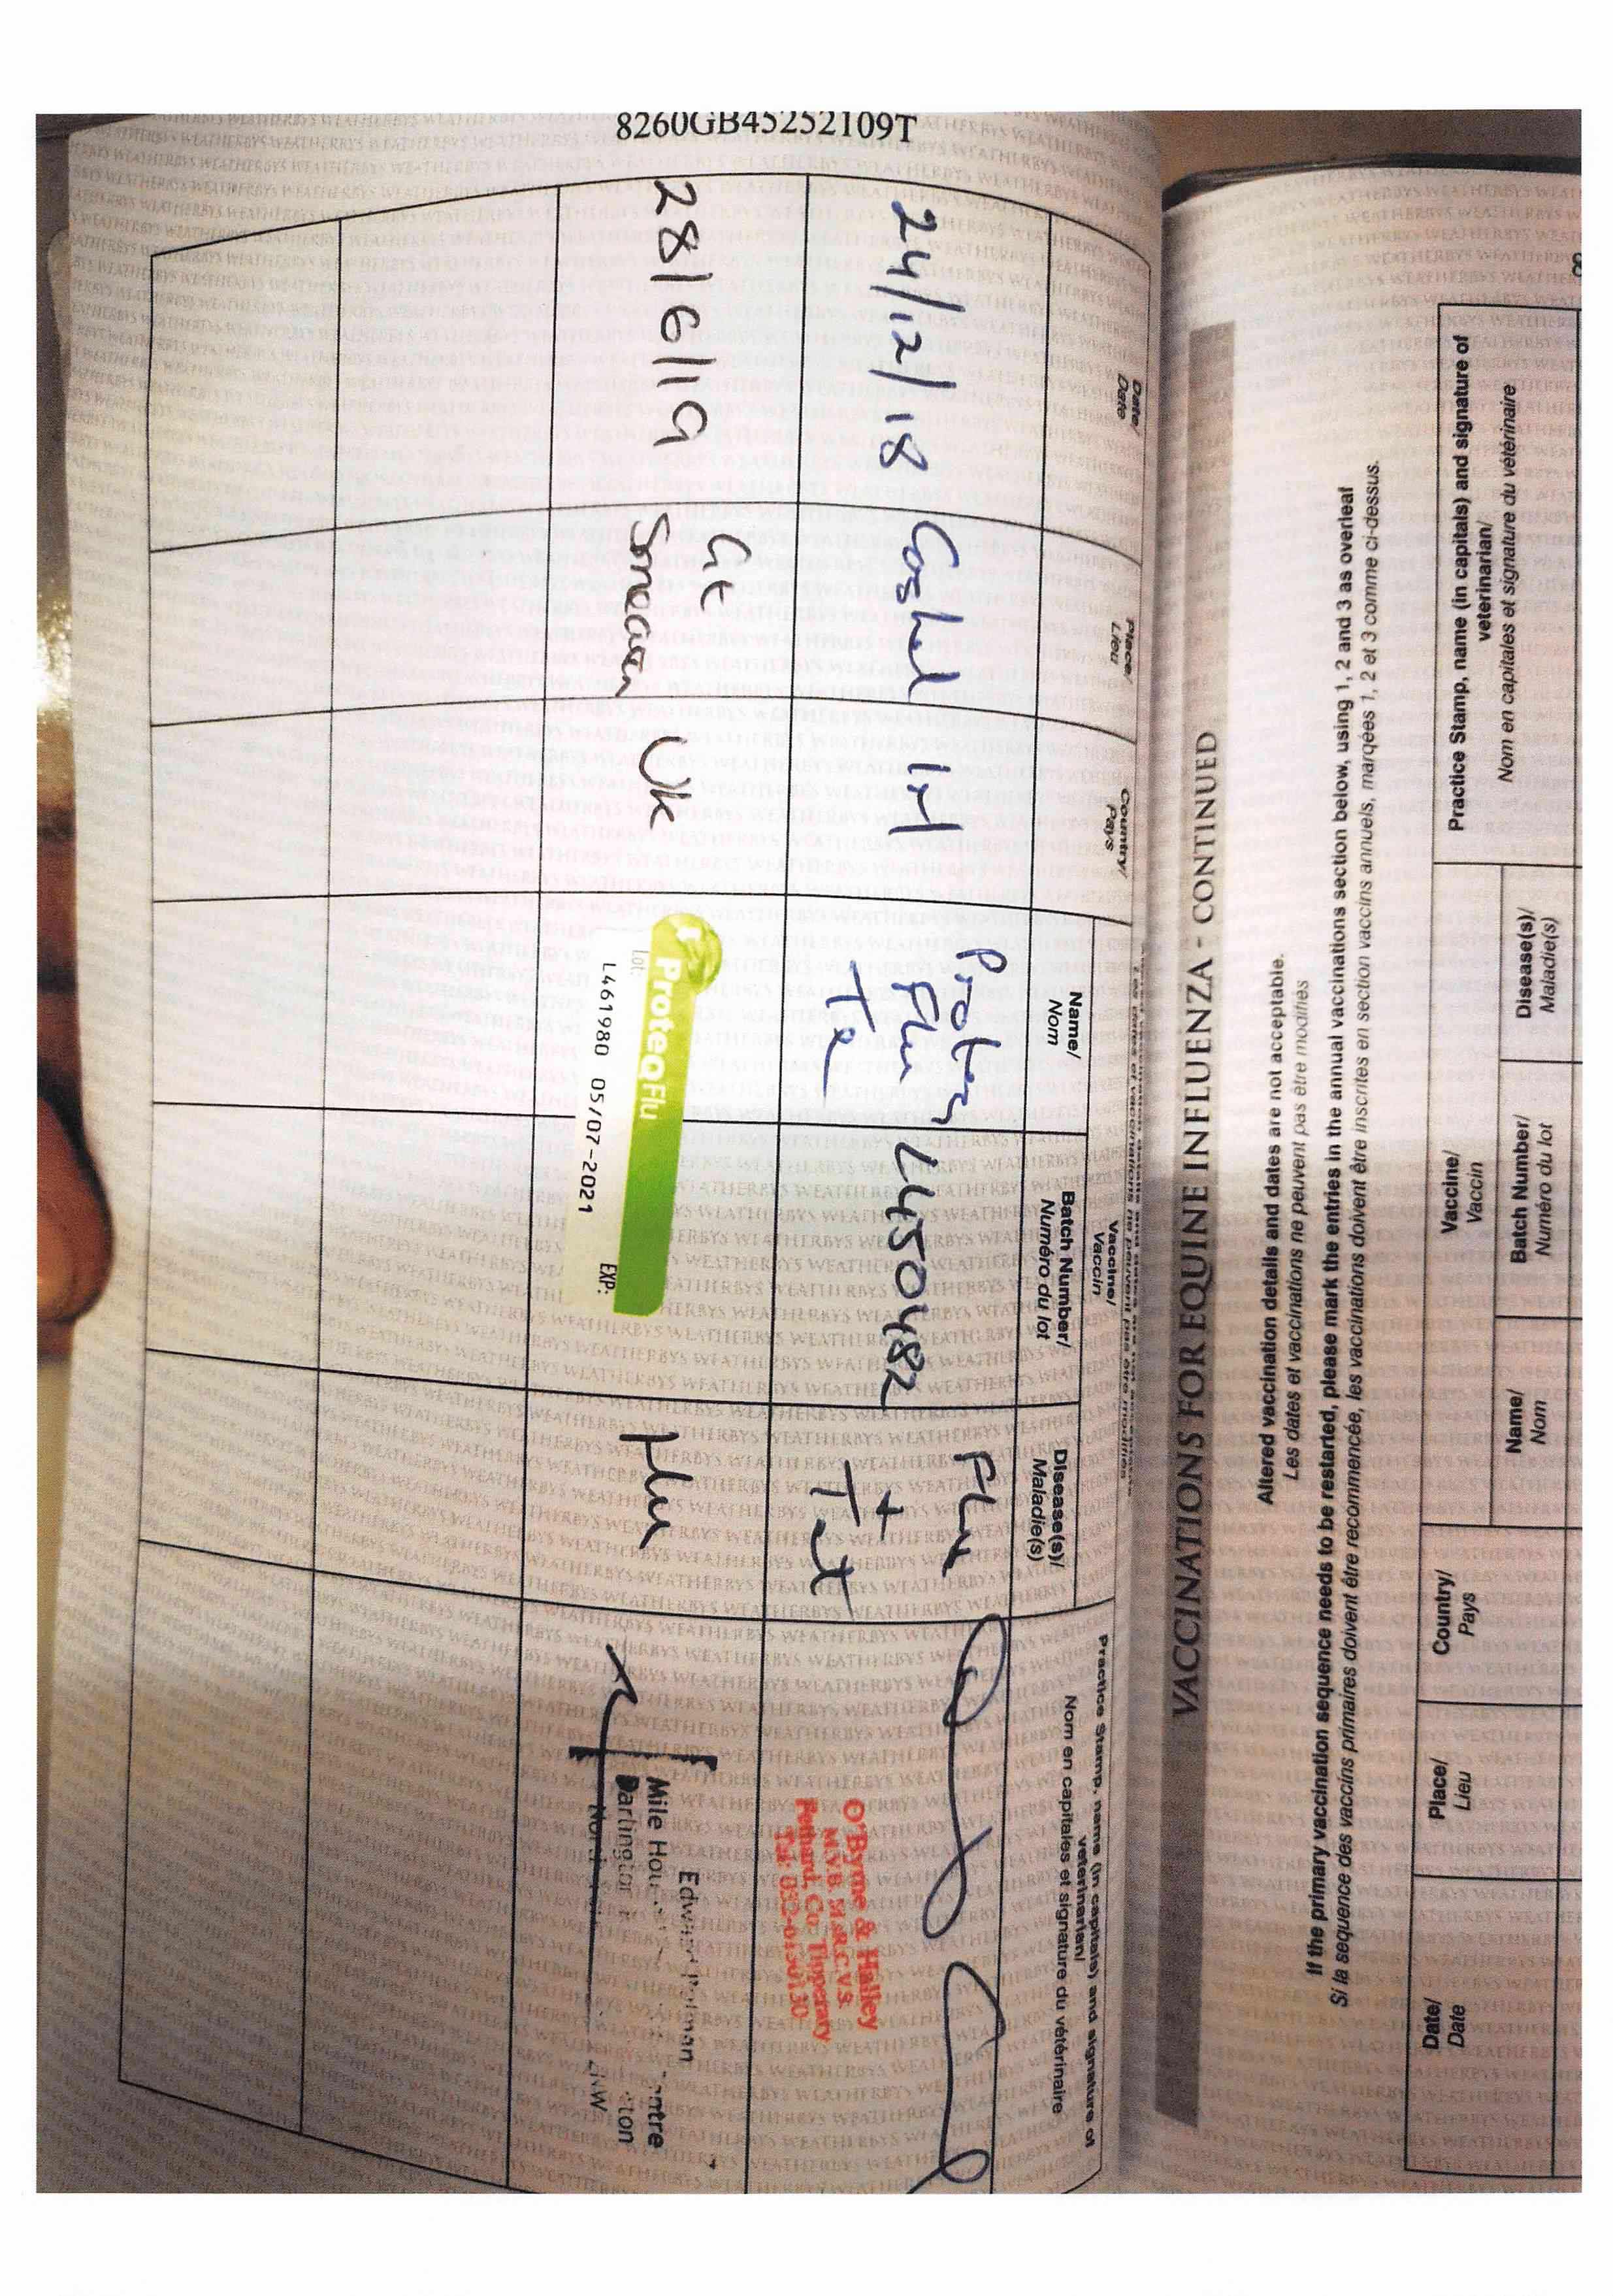 8260GB45252109T
Date/
Date
Place/
Lieu
Country/
Pays
Vaccine/
Vaccin
Name/
Nom
Batch Number/
Numéro du lot
Disease(s)/
Maladie(s)
Practice Stamp, name (in capitals) and signature of
veterinarian/
Nom en capitales et signature du vétérinaire
24/12/18
Cashel
Irl
Flu
Te
L450482
Flu
+
Tet
O'Byrne & Halley
M.V.B. M.R.C.V.S.
Fethard, Co. Tipperary
28/6/19
Gt
Smeaton
UK
ProteqFlu
Lot:
EXP:
L461980 05/07-2021
Flu
Mile House
Darlington
VACCINATIONS FOR EQUINE INFLUENZA - CONTINUED
Altered vaccination details and dates are not acceptable.
Les dates et vaccinations ne peuvent pas être modifiés
If the primary vaccination sequence needs to be restarted, please mark the entries in the annual vaccinations section below, using 1, 2 and 3 as overleaf
Si la sequence des vaccins primaires doivent être recommencée, les vaccinations doivent être inscrites en section vaccins annuels, marqées 1, 2 et 3 comme ci-dessus.
Date/
Date
Place/
Lieu
Country/
Pays
Vaccine/
Vaccin
Name/
Nom
Batch Number/
Numéro du lot
Disease(s)/
Maladie(s)
Practice Stamp, name (in capitals) and signature of
veterinarian/
Nom en capitales et signature du vétérinaire
8